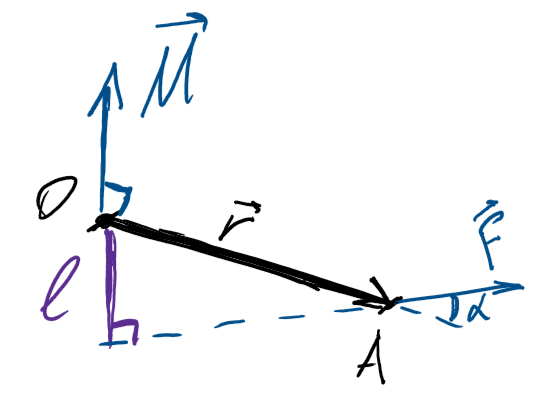 M⃗
O
r⃗
F⃗
l
α
A